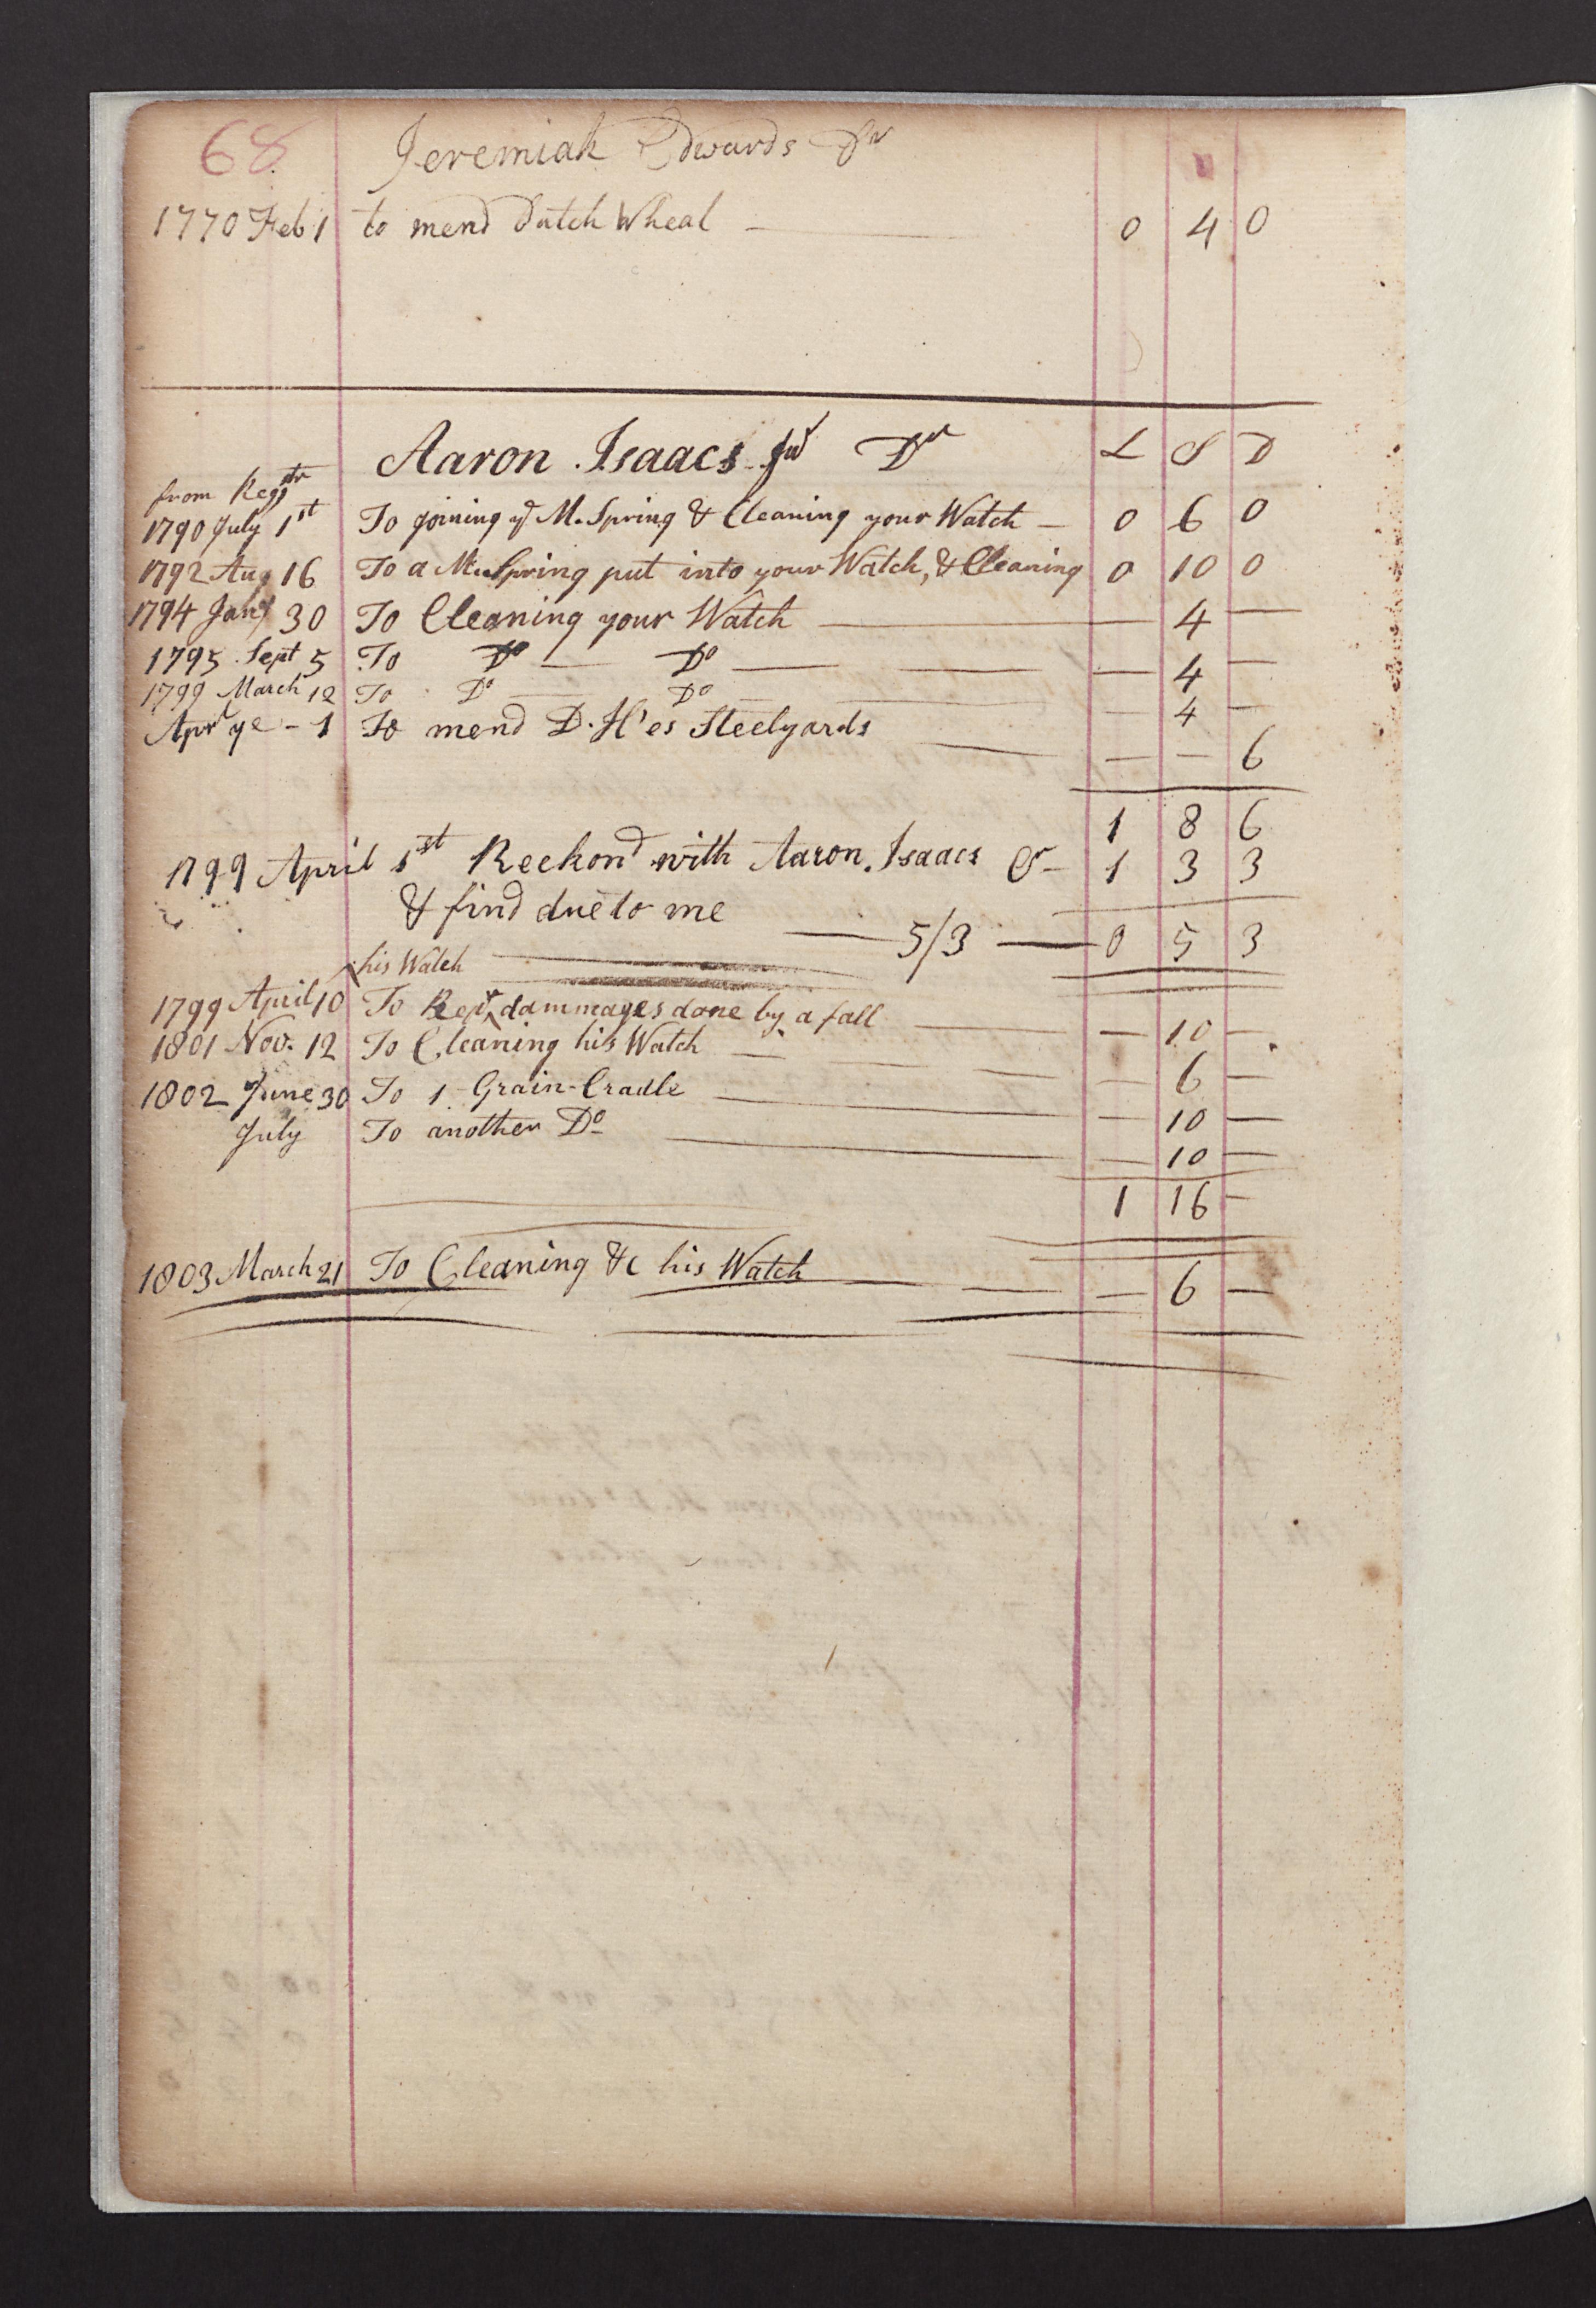 68 Jeremiah Edwards Dr
1770 Feb 1 to mend Dutch Wheal — 0 4 0
Aaron Isaacs Jur Dr L S D
from Regstr
1790 July 1st To joining ye M. Spring & Cleaning your Watch — 0 6 0
1792 Aug 16 To a M. Spring put into your Watch, & Cleaning 0 10 0
1794 Jany 30 To Cleaning your Watch — — 4 —
1795 Sept 5 To Do — Do — — 4 —
1799 March 12 To Do — Do — — 4 —
Apr ye - 1 To mend D. H'es Steelyards — — — 6
1 8 6
1799 April 1st Reckond with Aaron Isaacs Cr - 1 3 3
& find due to me — 5/3 — 0 5 3
his Watch
1799 April 10 To Repr ‸ dammages done by a fall — — 10 —
1801 Nov. 12 To Cleaning his Watch — — 6 —
1802 June 30 To 1 Grain-Cradle — — 10 —
July To another Do — — 10 —
1 16 —
1803 March 21 To Cleaning &c his Watch — — 6 —